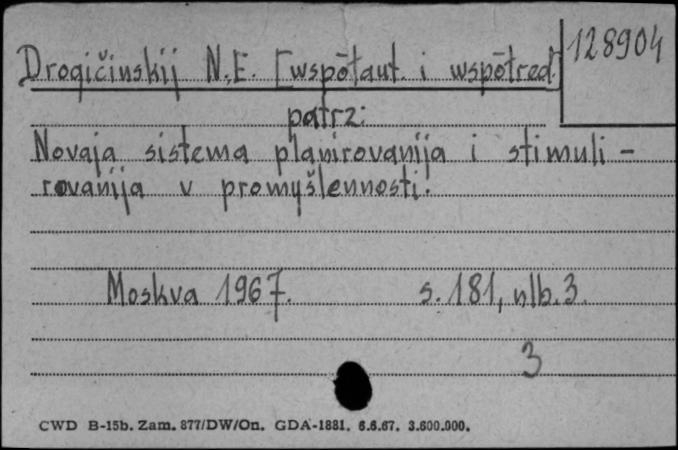 Drogičinskij N.E. [wspōłaut. i wspōłred.
128904
patrz:
Novaja sistema planirovanija i stimuli-
rovanija v promyšlennosti.
Moskva 1967. s. 181, nlb. 3.
3
CWD B-15b. Zam. 877/DW/On. GDA-1881. 6.6.67. 3.600.000.